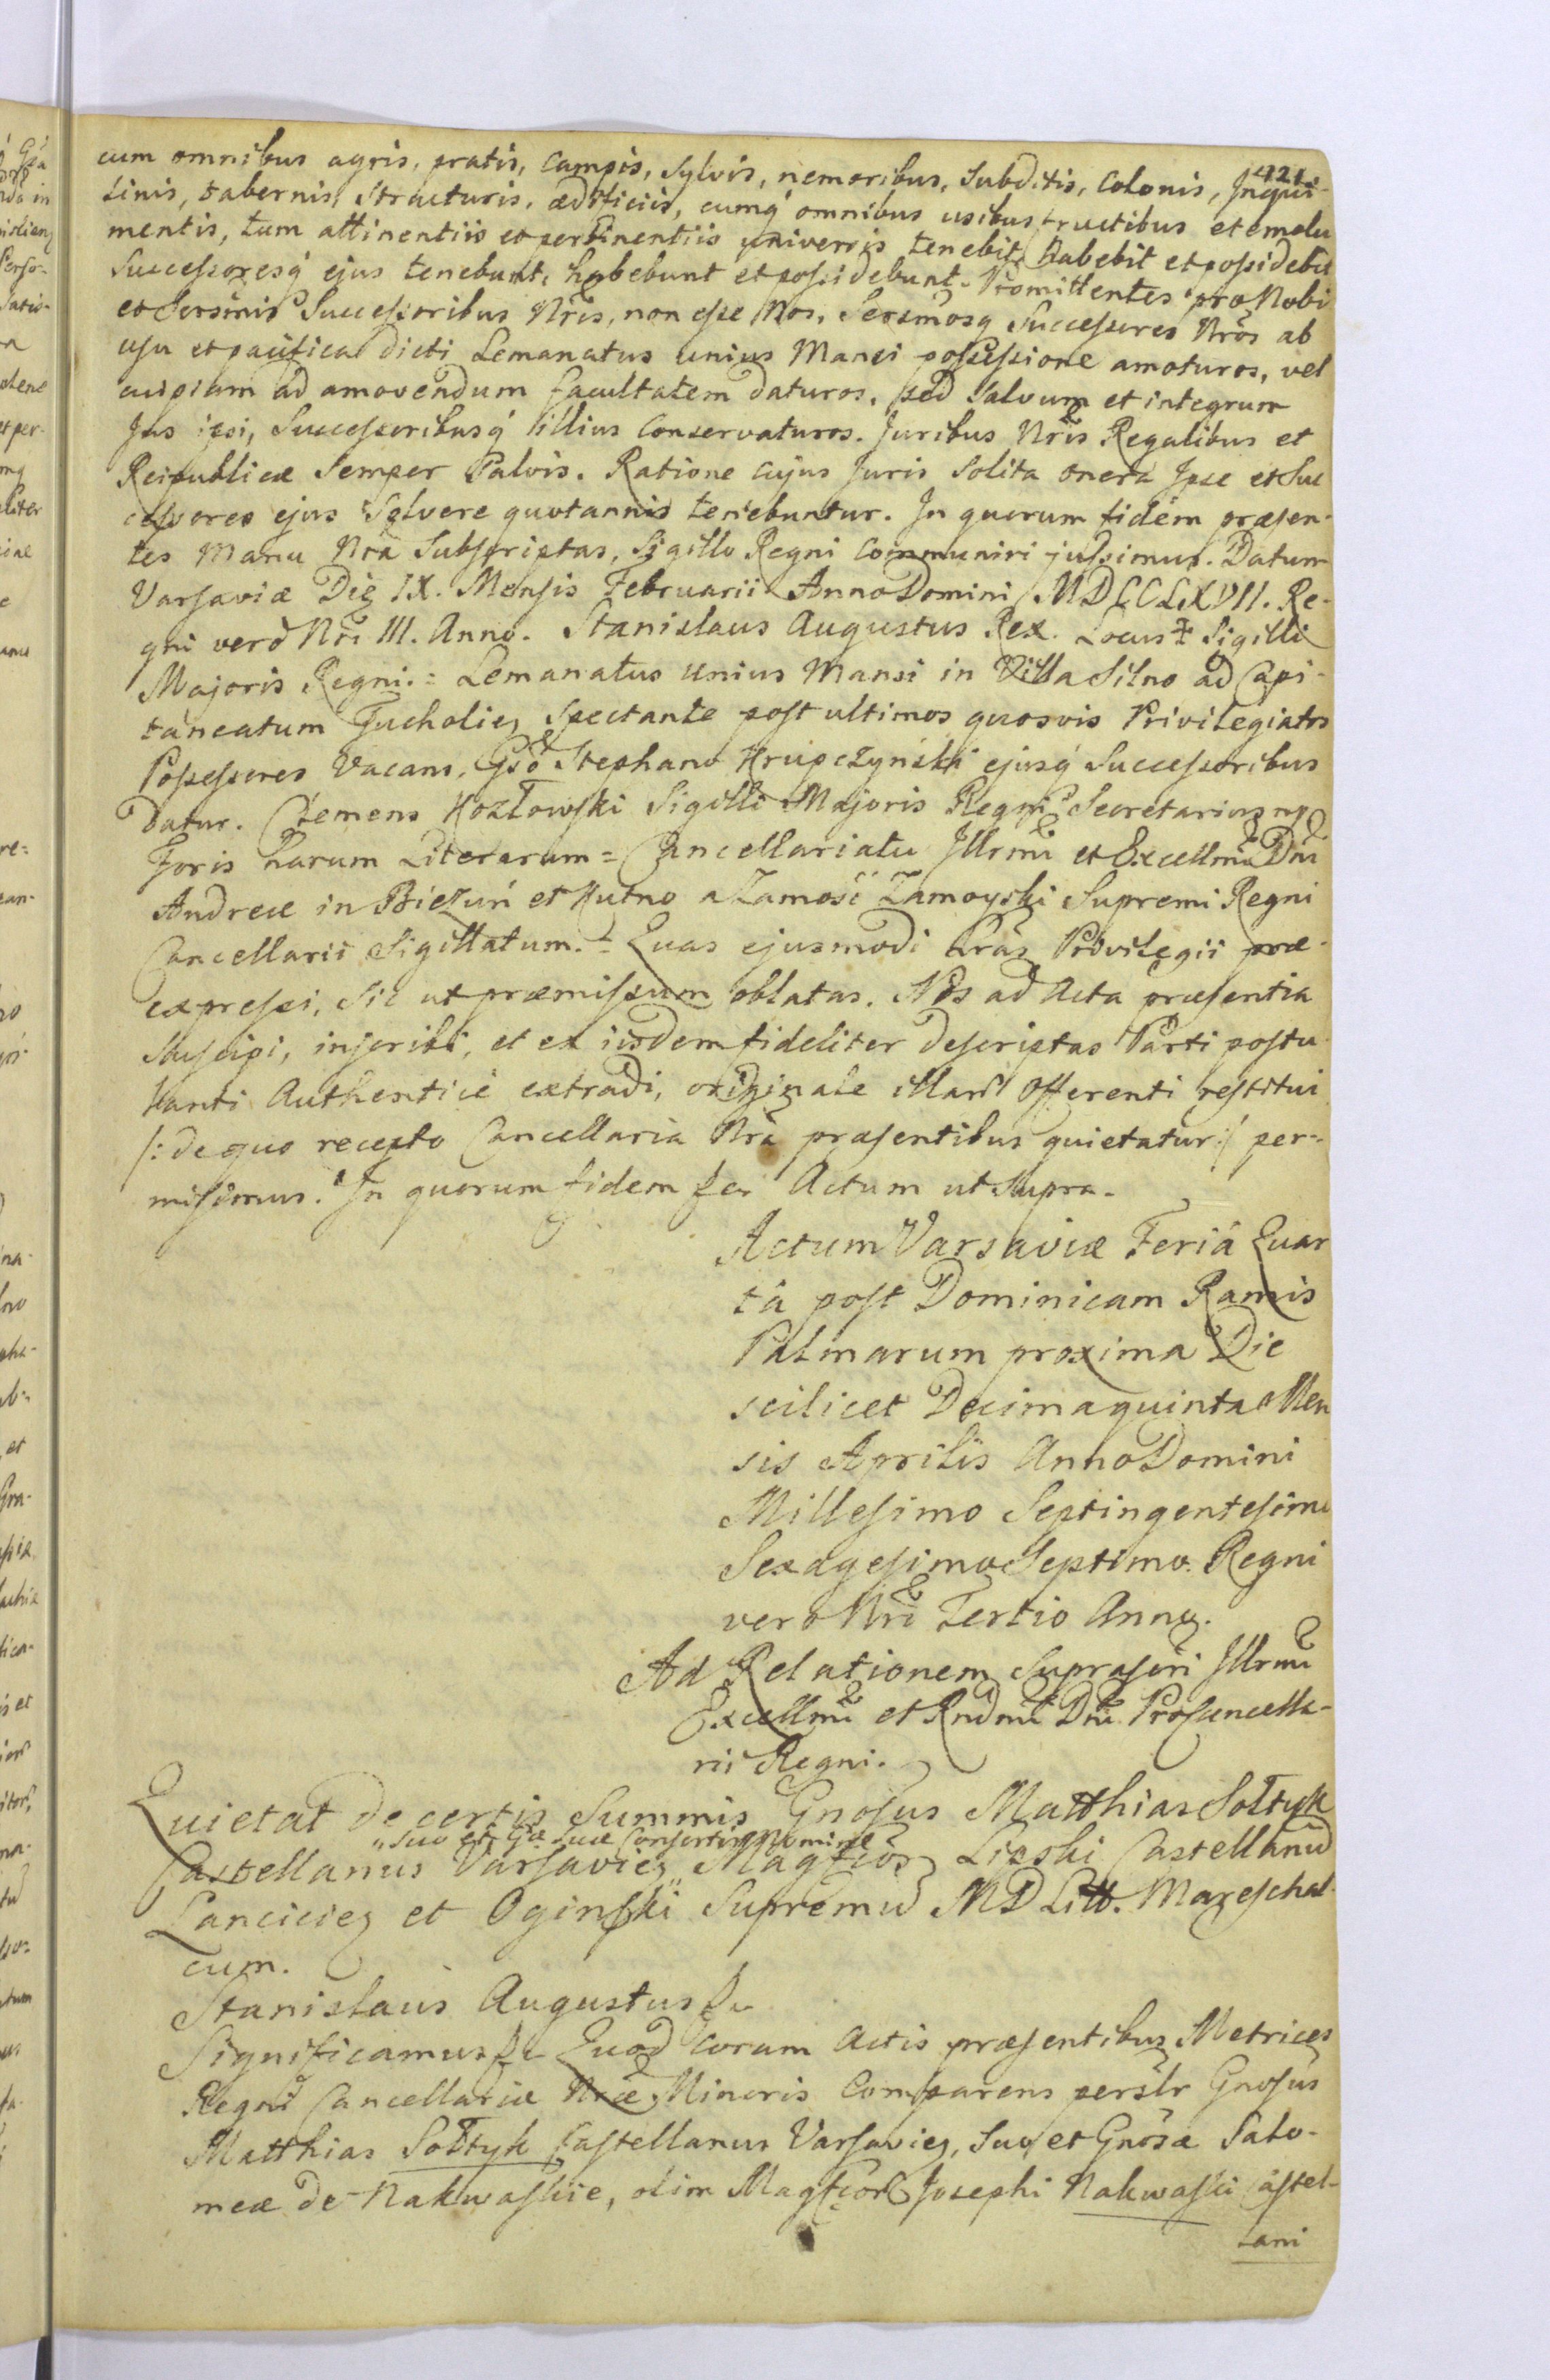 421.
cum omnibus agris, pratis, campis, Sylvis, nemoribus, Subditis, Colonis, Inqui-
linis, tabernis, Structuris, ædificiis, cumq́ omnibus usibus fructibus et emolu
mentis, tum attinentiis et pertinentiis universis tenebit, habebit et possidebit
Successoresq́ ejus tenebunt, habebunt et possidebunt. Promittentes pro Nobi
et Sersmis Successoribus Nris, non esse Nos, Sersmosq Successores Nros ab
usu et pacifica dicti Lemanatus unius Mansi possessione amoturos, vel
cuipiam ad amovendum facultatem daturos, sed Salvum et integrum
Jus ipsi, Successoribusq́ illius Conservaturos. Juribus Nris Regalibus et
Reipublicæ Semper Salvis. Ratione cujus Juris Solita onera Ipse et Suc
cessores ejus Solvere quotannis tenebuntur. In quorum fidem præsen-
tes Manu Nra Subscriptas, Sigillo Regni Communiri jussimus. Datum
Varsaviæ Die IX. Mensis Februarii Anno Domini MDCCLXVII. Re-
gni vero Nri III. Anno. Stanislaus Augustus Rex. Locus ‡ Sigilli
Majoris Regni.= Lemanatus unius Mansi in Villa Silno ad Capi-
taneatum Tucholieȝ Spectante post ultimos quosvis Privilegiatos
Possessores Vacans, Gso Stephano Krupczyński ejusq́ Successoribus
datur. Clemens Kozłowski Sigilli Majoris Regni Secretarius mp
Foris harum Literarum = Cancellariatu Illrmi et Excellmi Dni
Andreæ in Bieżuń et Kutno a Zamość Zamoyski Supremi Regni
Cancellarii Sigillatum.= Quas ejusmodi Lras Privilegii præ-
expressi, Sic ut præmissum oblatas. Nos ad Acta præsentia
Suscipi, inscribi, et ex iisdem fideliter descriptas Parti postu
lanti Authenticè extradi, originale illarū Offerenti restitui
/: de quo recepto Cancellaria Nra præsentibus quietatur :/ per=
misimus. In quorum fidem &c Actum ut Supra.
Actum Varsaviæ Feriâ Quar
tâ post Dominicam Ramis
Palmarum proxima Die
scilicet Decima quinta Men
sis Aprilis Anno Domini
Millesimo Septingentesimo
Sexagesimo Septimo. Regni
vero Nri Tertio Anno.
Ad Relationem Suprascri Illrmi
Excellmi et Rndmi Dni Procancella-
rii Regni.
Quietat de certis Summis Gnosus Matthias Sołtyk
„Suo et Gæ Suæ Consortis Nomine
Castellanus Varsavieȝ „ Magfcos Lipski Castellanū
Lancicieȝ et Oginski Supremū MD Litt. Mareschal-
cum.
Stanislaus Augustus &c
Significamus &c Quod coram Actis præsentibus Metrices
Regni Cancellariæ Nræ Minoris Comparens persłr Gnosus
Matthias Sołtyk Castellanus Varsavieȝ, Suo et Gnosæ Salo-
meæ de Nakwaskie, olim Magfcor Josephi Nakwaski Castel-
lani